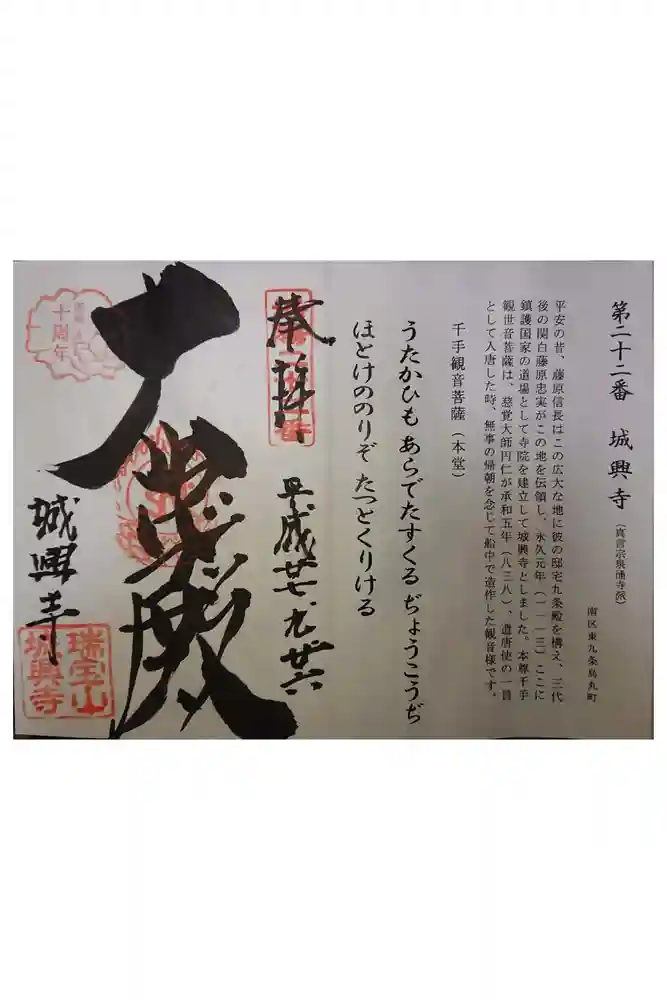 第二十二番 城興寺 (真言宗泉涌寺派)
南区東九条烏丸町
平安の昔、藤原信長はこの広大な地に彼の邸宅九条殿を構え、三代
後の関白藤原忠実がこの地を伝領し、永久元年(一一一三)ここに
鎮護国家の道場として寺院を建立して城興寺としました。本尊千手
観世音菩薩は、慈覚大師円仁が承和五年(八三八)、遣唐使の一員
として入唐した時、無事の帰朝を念じて船中で造作した観音様です。
千手観音菩薩(本堂)
うたかひも あらでたすくる ぢょうこうぢ
ほとけののりぞ たつとくりける
奉拝
平成廿七、九、廿六
大悲殿
城興寺
十周年
瑞宝山
城興寺